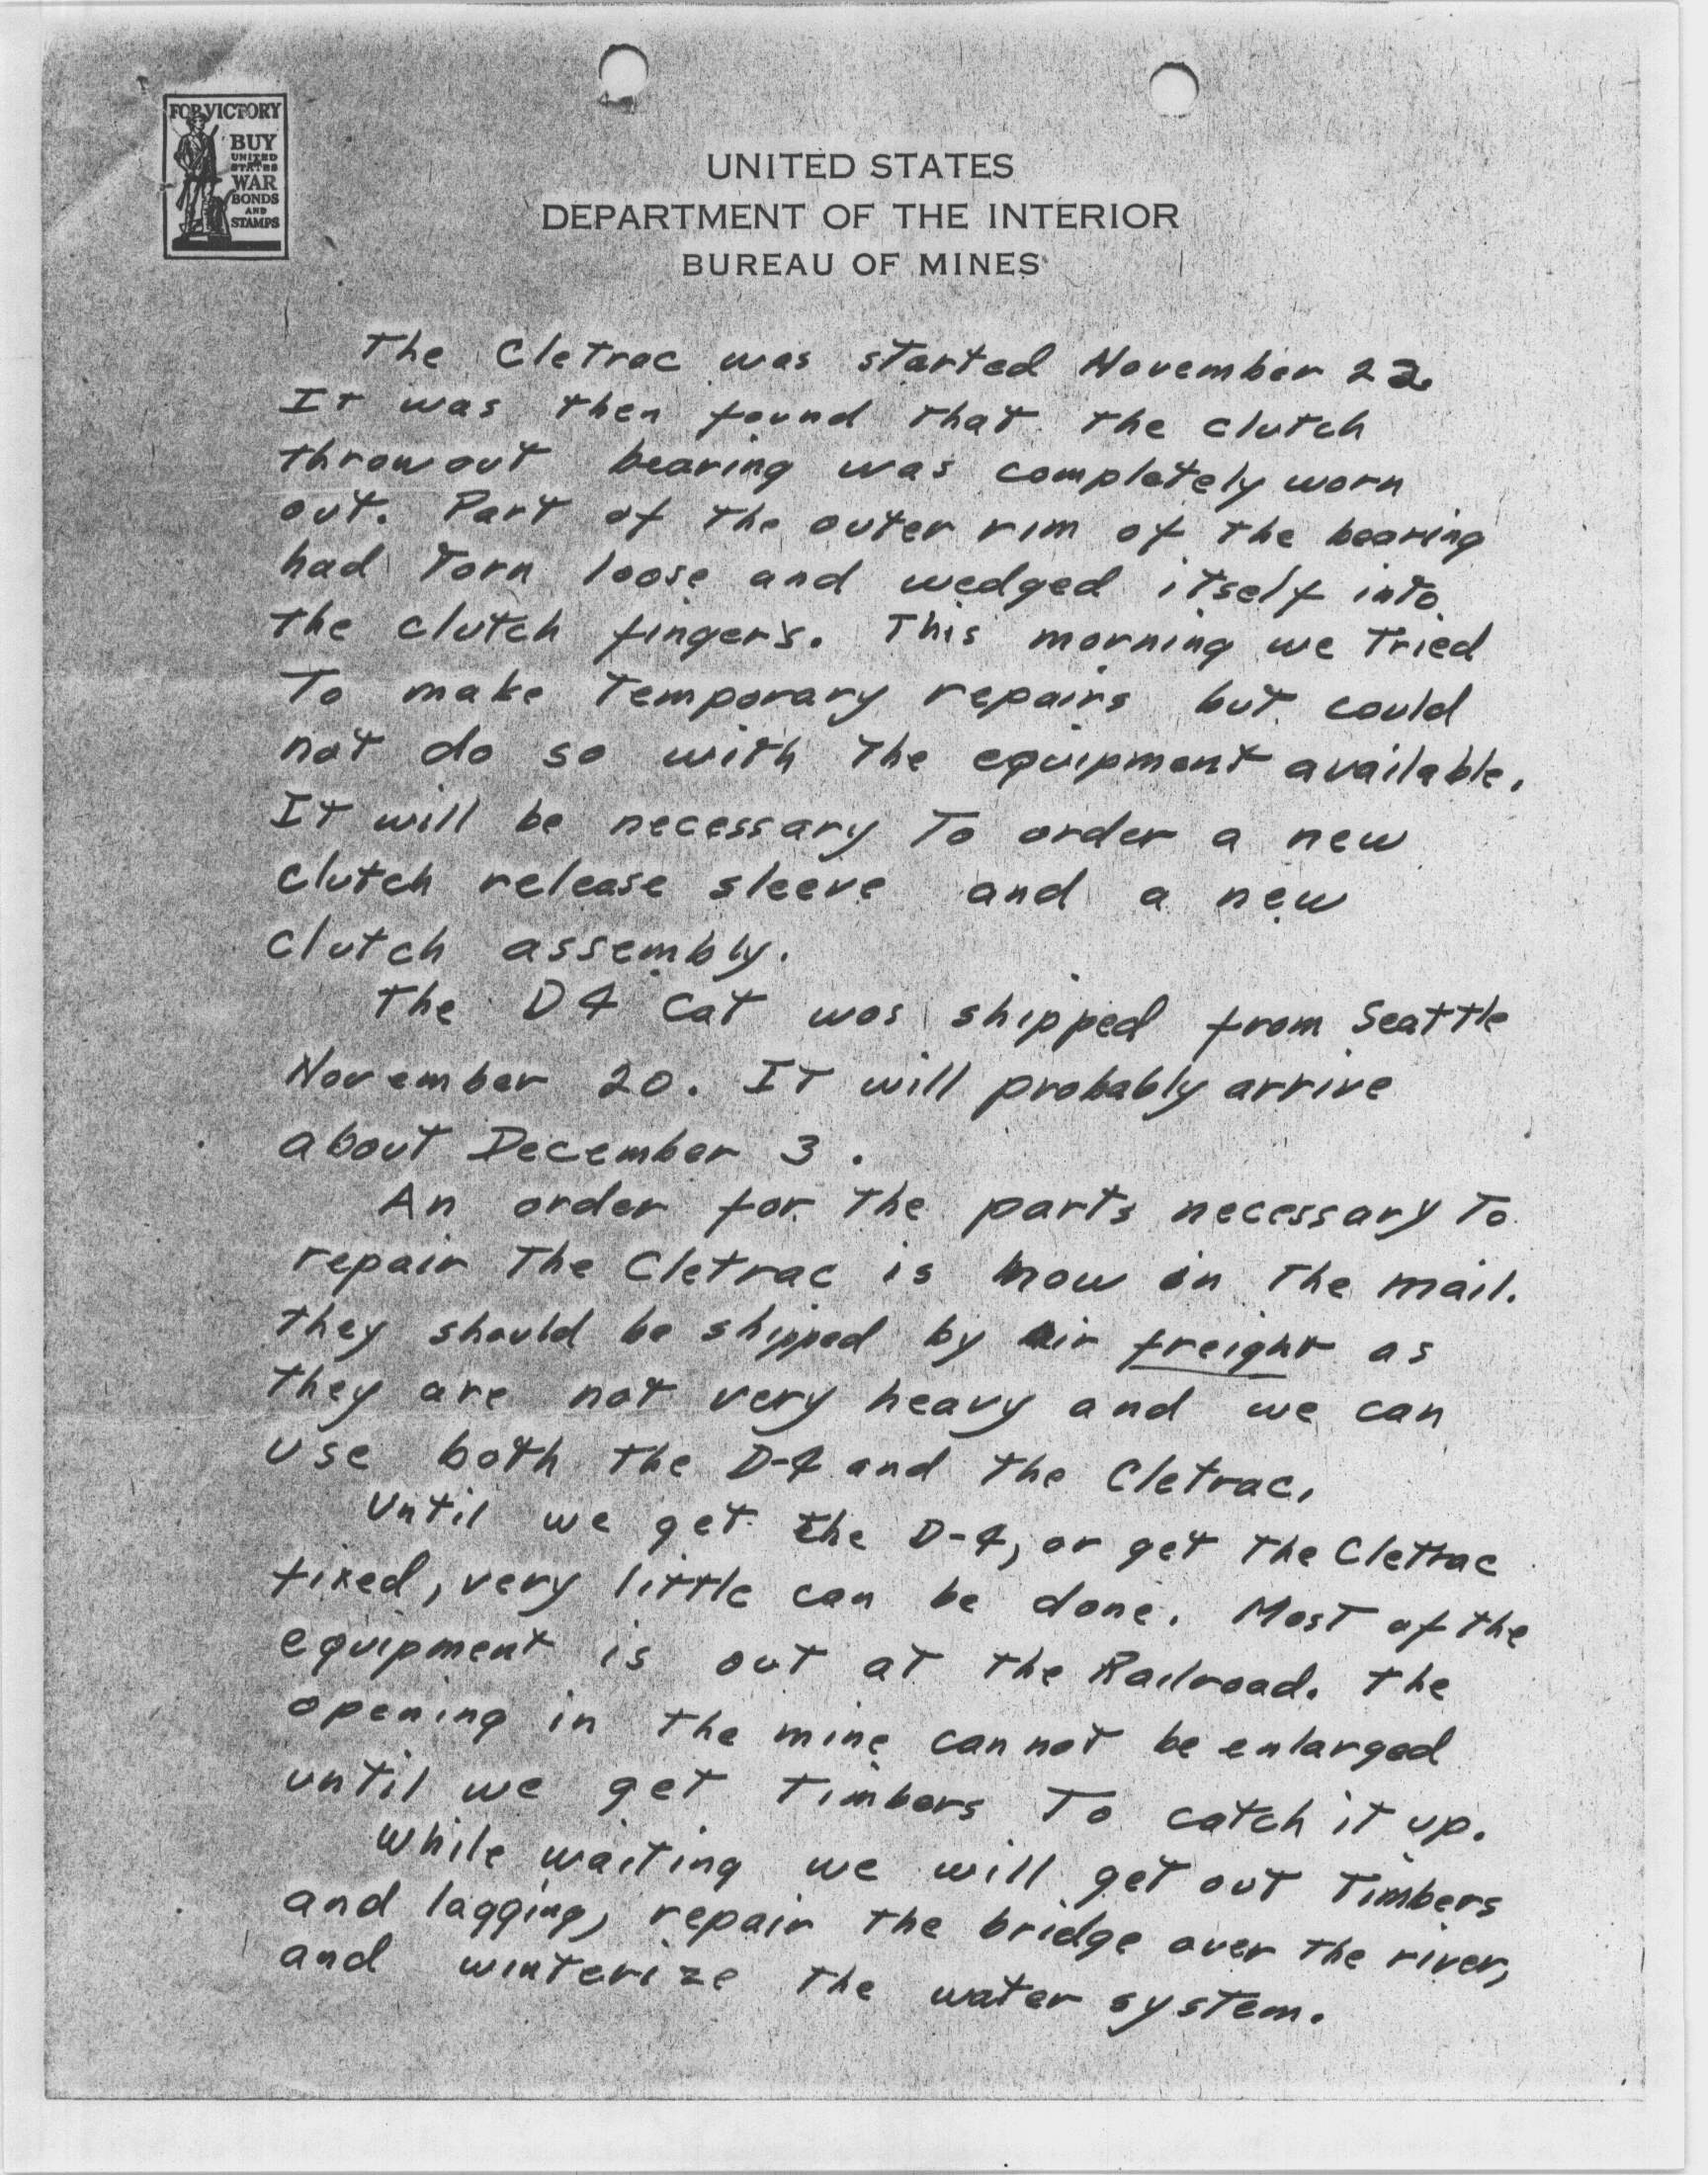 FOR VICTORY
BUY
UNITED
STATES
WAR
BONDS
AND
STAMPS
UNITED STATES
DEPARTMENT OF THE INTERIOR
BUREAU OF MINES
The Cletrac was started November 22.
It was then found that the clutch
throwout bearing was completely worn
out. Part of the outer rim of the bearing
had torn loose and wedged itself into
the clutch fingers. This morning we tried
to make temporary repairs but could
not do so with the equipment available.
It will be necessary to order a new
clutch release sleeve and a new
clutch assembly.
The D4 Cat was shipped from Seattle
November 20. It will probably arrive
about December 3.
An order for the parts necessary to
repair the Cletrac is now in the mail.
They should be shipped by air freight as
they are not very heavy and we can
use both the D-4 and the Cletrac.
Until we get the D-4, or get the Cletrac
fixed, very little can be done. Most of the
equipment is out at the Railroad. The
opening in the mine cannot be enlarged
until we get timbers to catch it up.
While waiting we will get out timbers
and lagging, repair the bridge over the river,
and winterize the water system.